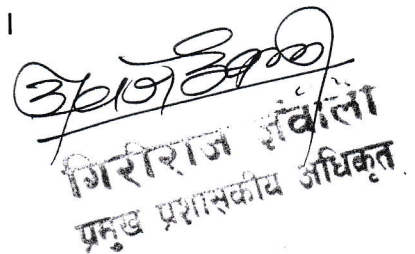 ।
गिरीराज ज्ञवाली
प्रमुख प्रशासकीय अधिकृत